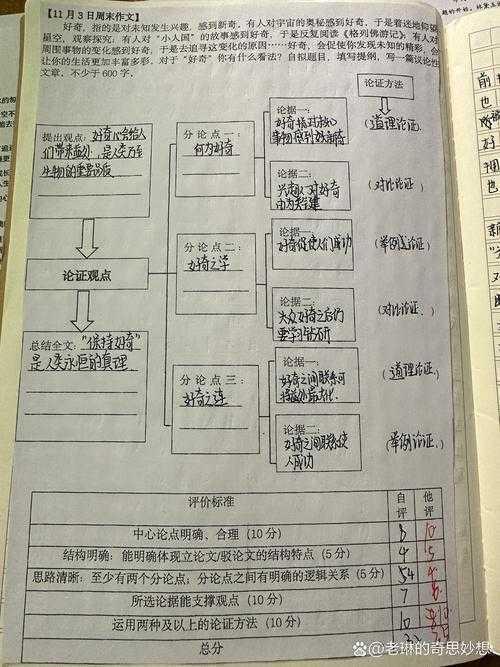 【11月3日周末作文】
好奇,指的是对未知发生兴趣,感到新奇,有人对宇宙的奥秘感到好奇,于是着迷地仰望
星空,观察探究;有人对“小人国”的故事感到好奇,于是反复阅读《格列佛游记》;有人对
周围事物的变化感到好奇,于是去追寻这变化的原因……好奇,会促使你发现未知的精彩,会
让你的生活更加丰富多彩。对于“好奇”你有什么看法?自拟题目,填写提纲,写一篇议论性
文章,不少于600字。
论证方法
提出观点:好奇心会给人
们带来益处,是人类乃至
生物的重要品质
分论点一:
何为好奇
论据一:
好奇
事物感到新奇
(道理论证)
论据二:
兴趣 对好奇
(对比论证)
论证观点
分论点二:
好奇之学
论据一:
好奇促使人们成功
(举例论证)
论据二:
大众好奇之后们
要学习钻研
(对比论证、)
总结全文:“保持好奇”
是人类永恒的真理
分论点三:
好奇之连
论据一:
好奇之间联系可
(道理论证)
论据二:
好奇之间联系使
人成功
(举例论证)
评价标准 自评 他评
中心论点明确、合理(10分) 8 10
结构明确:能明确体现立论文/驳论文的结构特点(5分) 4 5
思路清晰:至少有两个分论点;分论点之间有明确的逻辑关系(5分) 4
所选论据能支撑观点(10分) 7
运用两种及以上的论证方法(10分) 10 10
总分
@老琳的奇思妙想